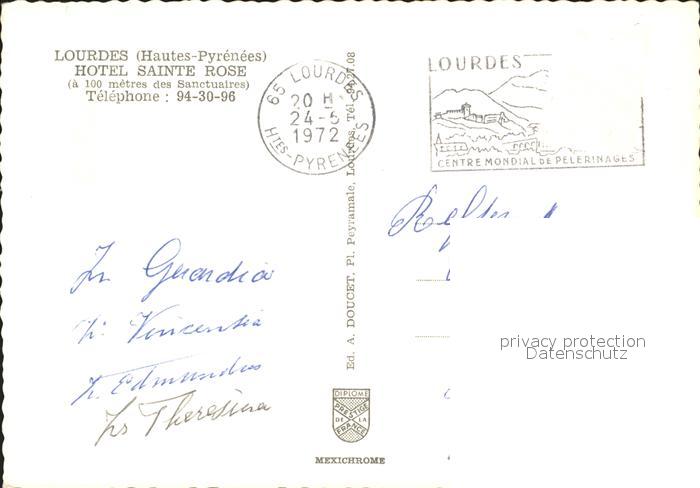 LOURDES (Hautes-Pyrénées)
HOTEL SAINTE ROSE
(à 100 mètres des Sanctuaires)
Téléphone : 94-30-96
65 LOURDES
20 H
24-5
1972
Htes-PYRENEES
LOURDES
CENTRE MONDIAL DE PELERINAGES
Ed. A. DOUCET, Pl. Peyramale, Lourdes, Tél.
Guardia
Vincentia
Edmundus
Theresina
privacy protection
Datenschutz
DIPLOME
PRESTIGE
DE LA
FRANCE
MEXICHROME